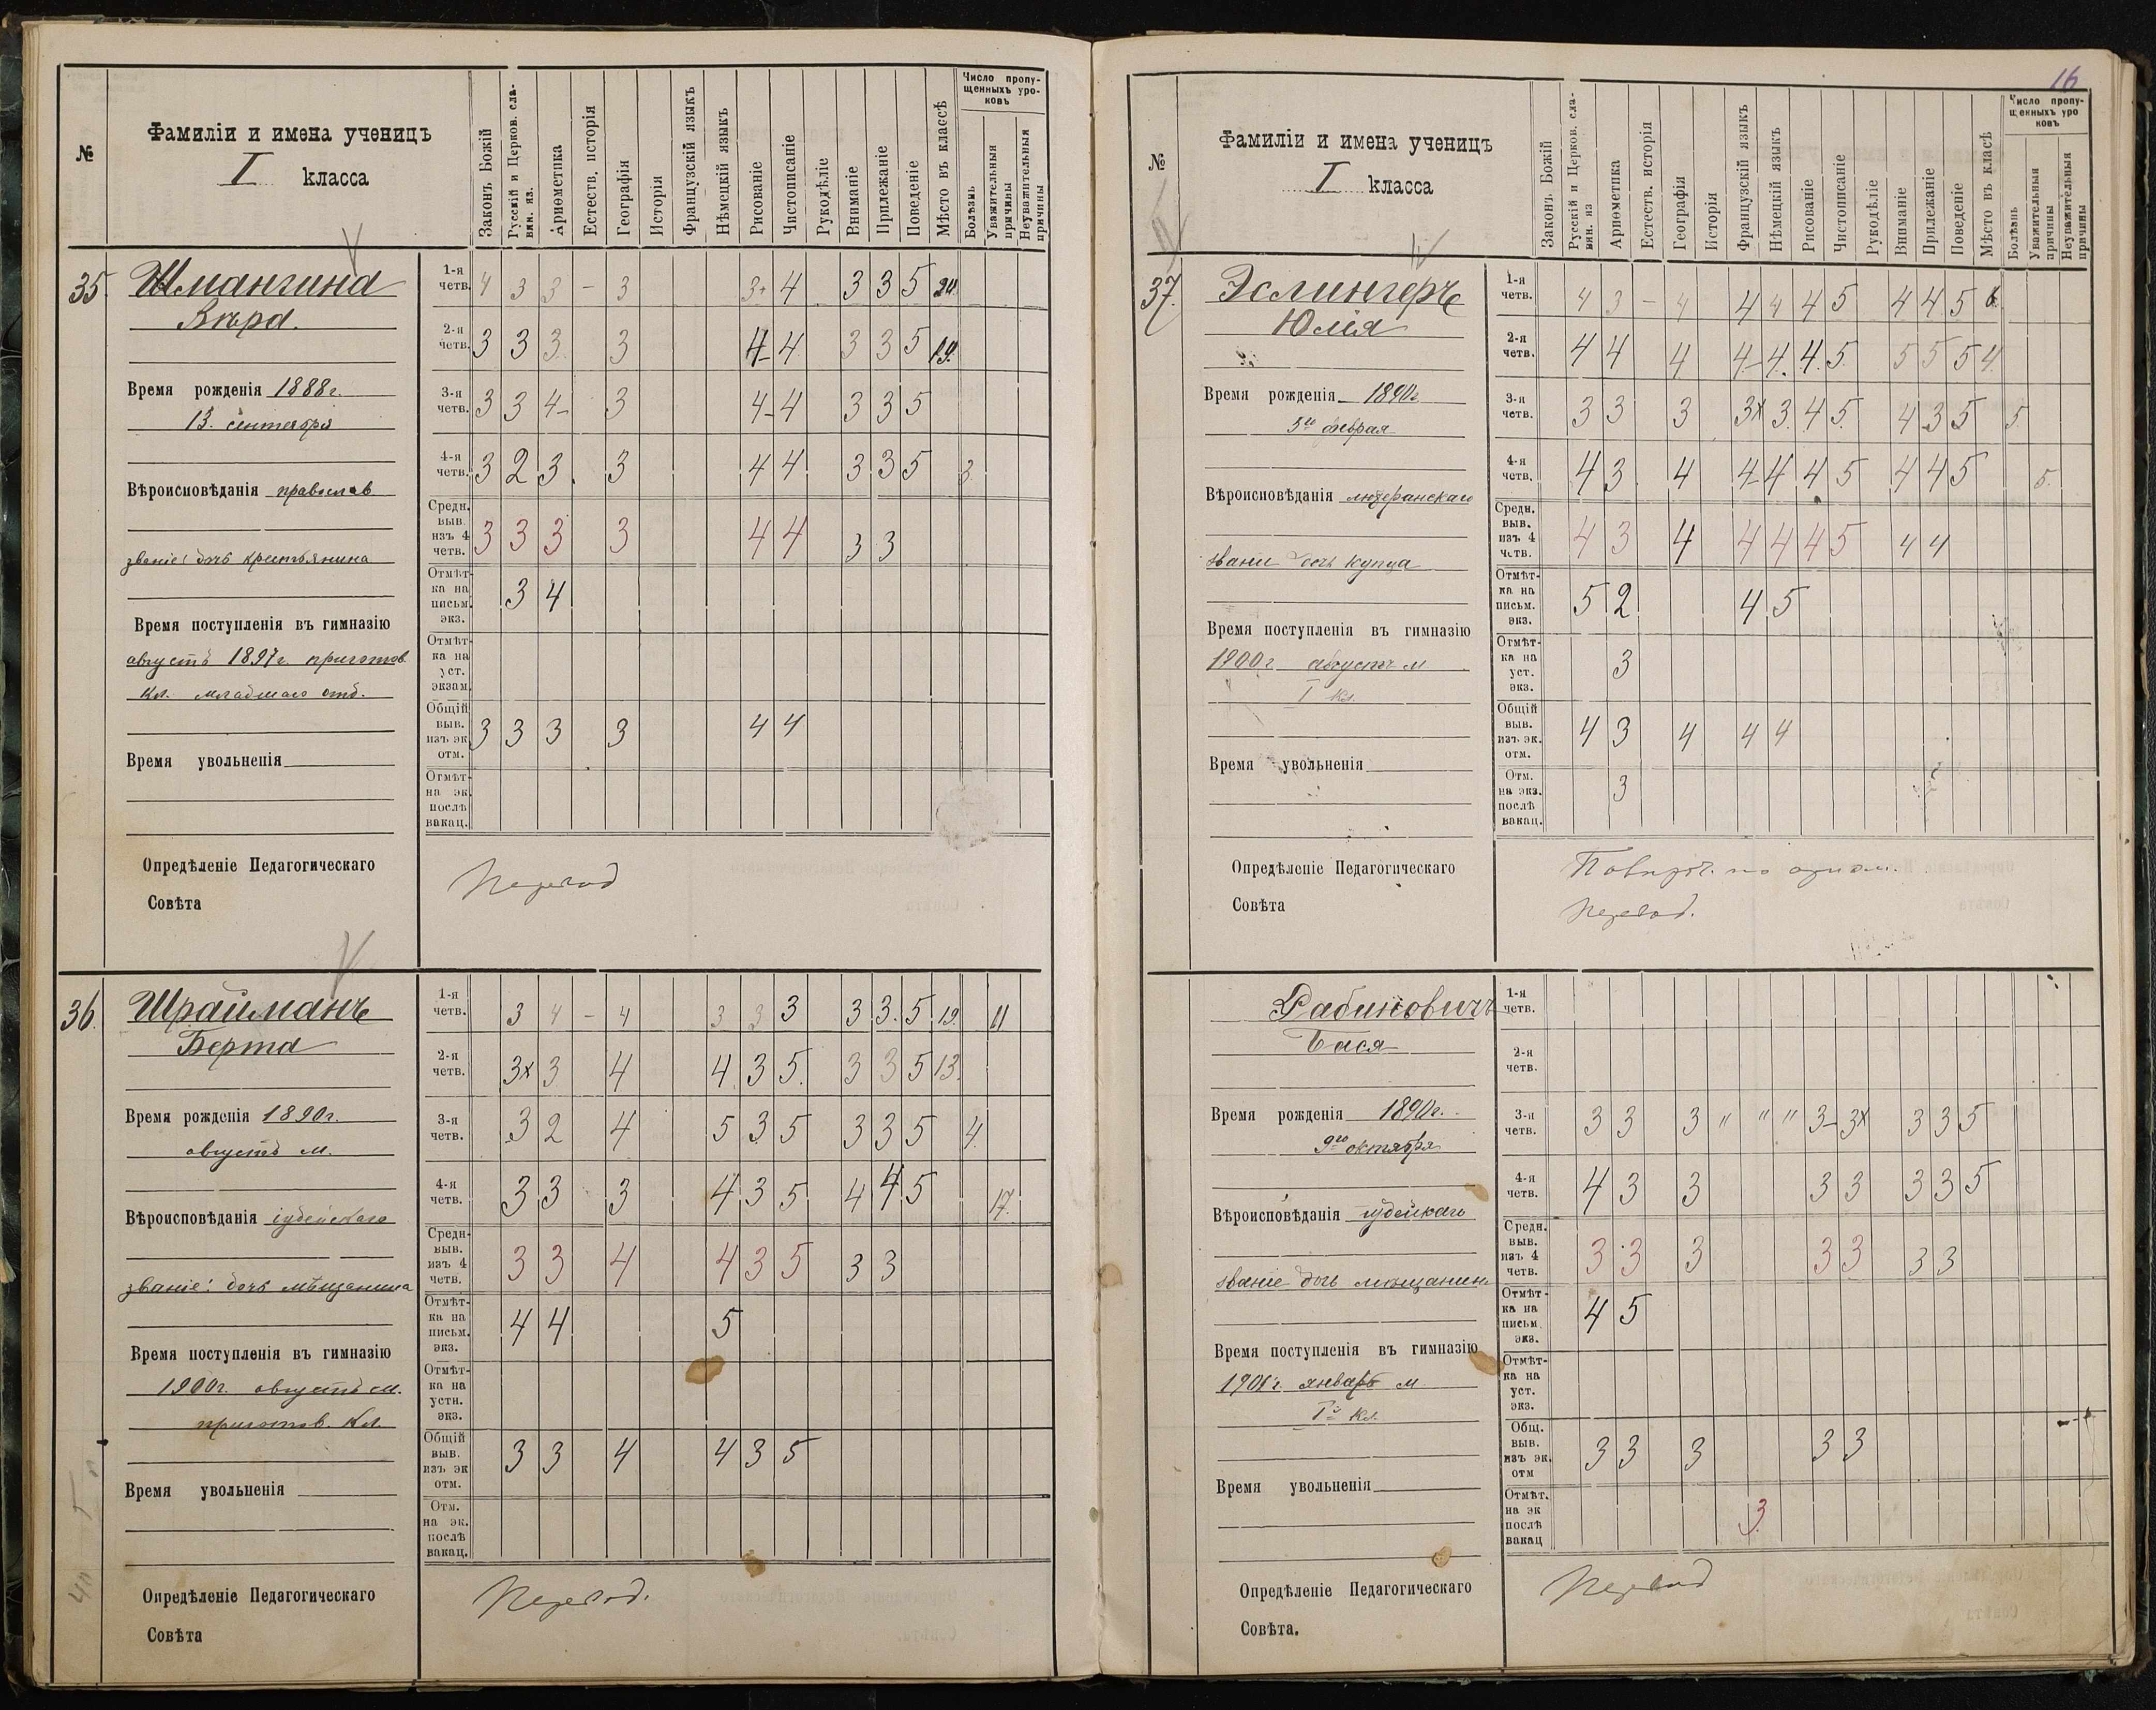 №
Фамиліи и имена ученицъ
I класса
Законъ Божій
Русскій и Церков. сла-
вян. яз.
Ариѳметика
Естеств. исторія
Географія
Исторія
Французскій языкъ
Нѣмецкій языкъ
Рисованіе
Чистописаніе
Рукодѣліе
Вниманіе
Прилежаніе
Поведеніе
Мѣсто въ классѣ
Число пропу-
щенныхъ уро-
ковъ
Болѣзнь
Уважительныя
причины
Неуважительныя
причины
35.
Шмангина
Вѣра.
Время рожденія 1888г.
13. сентября
Вѣроисповѣданія православ
званіе: дочь крестьянина
Время поступленія въ гимназію
августъ 1897г. приготов.
кл. младшаго отд.
Время увольненія
1-я четв. 4 3 3 – 3 3+ 4 3 3 5 24.
2-я четв. 3 3 3 3 4- 4 3 3 5 19.
3-я четв. 3 3 4- 3 4- 4 3 3 5
4-я четв. 3 2 3. 3 4 4 3 3 5 3.
Средн. выв. изъ 4 четв. 3 3 3 3 4 4 3 3
Отмѣт-ка на письм. экз. 3 4
Отмѣт-ка на уст. экзам.
Общій выв. изъ эк. отм. 3 3 3 3 4 4
Отмѣт- на эк. послѣ вакац.
Опредѣленіе Педагогическаго
Совѣта
Перевод
36.
Шрайманъ
Берта
Время рожденія 1890г.
августъ м.
Вѣроисповѣданія іудейскаго
званіе: дочь мѣщанина
Время поступленія въ гимназію
1900г. августъ м.
приготов. кл.
Время увольненія
1-я четв. 3 4 – 4 3 3 3 3 3. 5 19. 11
2-я четв. 3х 3 4 4. 3 5. 3 3 5 13.
3-я четв. 3 2 4 5 3 5 3 3 5 4.
4-я четв. 3 3 3 4 3 5 4 4 5 17.
Средн- выв. изъ 4 четв. 3 3 4 4 3 5 3 3
Отмѣт-ка на письм. экз. 4 4 5
Отмѣт-ка на устн. экз.
Общій выв. изъ эк отм. 3 3 4 4 3 5
Отм. на эк. послѣ вакац.
Опредѣленіе Педагогическаго
Совѣта
Перевод.
16
№
Фамиліи и имена ученицъ
I класса
Законъ Божій
Русскій и Церков. сла-
вян. яз
Ариѳметика
Естеств. исторія
Географія
Исторія
Французскій языкъ
Нѣмецкій языкъ
Рисованіе
Чистописаніе
Рукодѣліе
Вниманіе
Прилежаніе
Поведеніе
Мѣсто въ классѣ
Число пропу-
щенныхъ уро
ковъ
Болѣзнь
Уважительныя
причины
Неуважительныя
причины
37.
Эслингеръ
Юлія
Время рожденія 1890г
5го феврал
Вѣроисповѣданія лютеранскаго
звание дочь купца
Время поступленія въ гимназію
1900г августъ м
I кл.
Время увольненія
1-я четв. 4 3 – 4 4 4 4 5 4 4 5 6.
2-я четв. 4 4 4 4- 4. 4. 5. 5 5 5 4.
3-я четв. 3 3 3 3х 3. 4 5. 4 3 5 5.
4-я четв. 4 3 4 4- 4 4 5 4 4 5 5.
Средн. выв. изъ 4 четв. 4 3 4 4 4 4 5 4 4
Отмѣт-ка на письм. экз. 5 2 4 5
Отмѣт-ка на уст. экз. 3
Общій выв. изъ эк. отм. 4 3 4 4 4
Отм. на экз. послѣ вакац. 3
Опредѣленіе Педагогическаго
Совѣта
Повѣроч. по ариѳм.
Перевод.
Рабиновичъ
Бася
Время рожденія 1890г.
9го октября
Вѣроисповѣданія іудейкаго
званіе дочь мѣщанин
Время поступленія въ гимназію
1901г. январь м
Iй кл.
Время увольненія
1-я четв.
2-я четв.
3-я четв. 3 3 3 " " " 3- 3х 3 3 5
4-я четв. 4 3 3 3 3 3 3 5
Средн. выв. изъ 4 четв. 3 3 3 3 3 3 3
Отмѣт-ка на письм. экз. 4 5
Отмѣт-ка на уст. экз.
Общ. выв. изъ эк. отм 3 3 3 3 3
Отмѣт. на эк послѣ вакац 3.
Опредѣленіе Педагогическаго
Совѣта.
Перевод